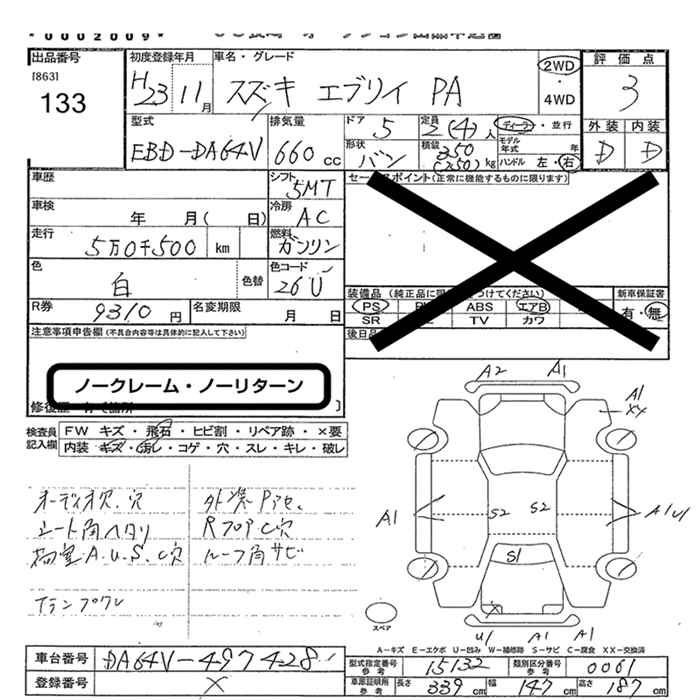 *0002009*
出品番号
[863]
133
初度登録年月
H23 11月
車名・グレード
スズキ エブリイ PA
2WD
・
4WD
評価点
3
外装 内装
D D
型式
EBD-DA64V
排気量
660cc
ドア
5
定員
2(4)人
ディーラー・並行
モデル年式 年
形状
バン
積載
350(250)kg
ハンドル 左・右
車歴
シフト
5MT
セールスポイント(正常に機能するものに限ります)
車検
年 月( 日)
冷房
AC
走行
5万0千500 km
燃料
ガソリン
色
白
色替
色コード
26U
装備品
PS ABS エアB
SR TV カワ
新車保証書
有・無
R券
9310円
名変期限
月 日
後日品
注意事項申告欄(不具合内容等は具体的に記入して下さい)
ノークレーム・ノーリターン
検査員記入欄
FW キズ・飛石・ヒビ割・リペア跡・×要
内装・キズ・汚レ・コゲ・穴・スレ・キレ・破レ
オーディオ欠.穴
シート角ヘタリ
外装Pアセ.
RフロアC穴
ルーフ角サビ
A2 A1
A1
XX
A1
S2 S2
A1U1
S1
X
U1 A1 A1
スペア
A-キズ E-エクボ U-凹み W-補修跡 S-サビ C-腐食 XX-交換済
車台番号
DA64V-497428
登録番号
X
型式指定番号
参考
15132
類別区分番号
参考
0061
車庫証明用
参考
長さ
339cm
幅
147cm
高さ
187cm